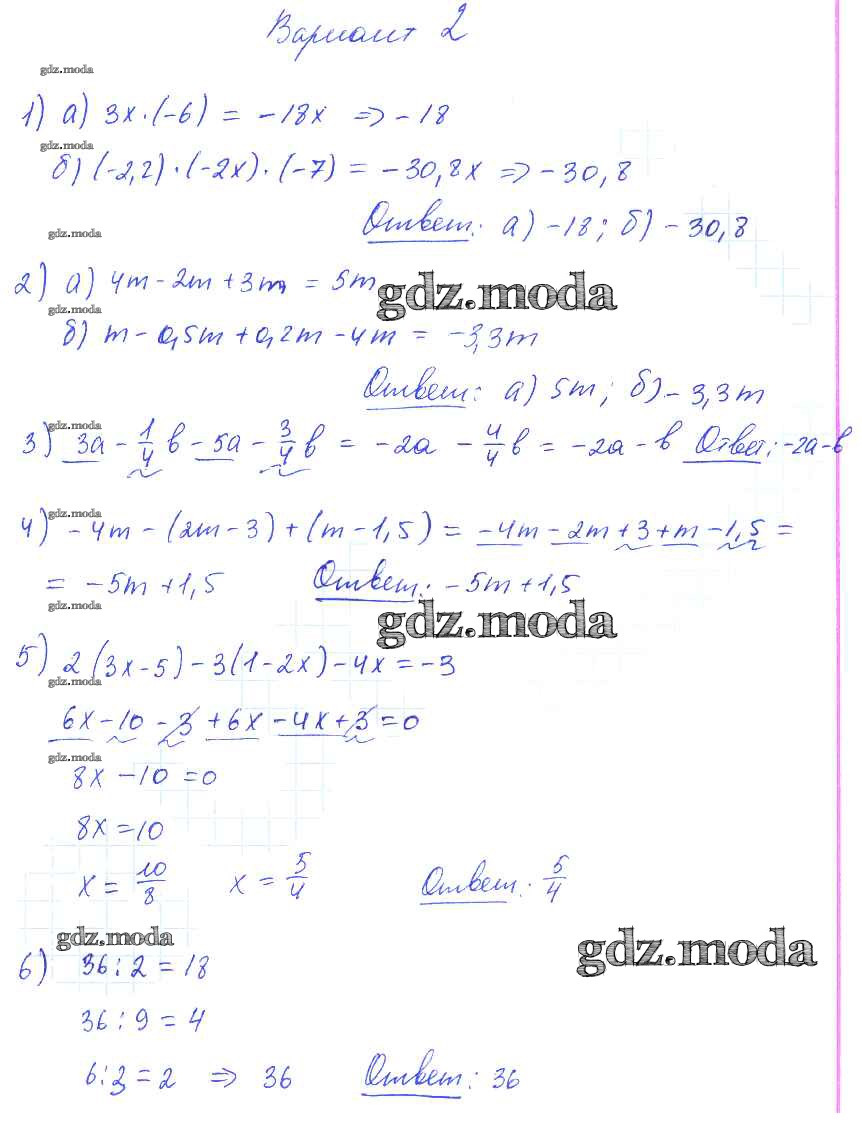 Вариант 2
gdz.moda
1) а) 3x·(-6) = -18x => -18
gdz.moda
б) (-2,2)·(-2x)·(-7) = -30,8x => -30,8
gdz.moda
Ответ: а) -18; б) -30,8
2) а) 4m - 2m + 3m = 5m
gdz.moda
gdz.moda
б) m - 0,5m + 0,2m - 4m = -3,3m
Ответ: а) 5m; б) -3,3m
gdz.moda
3) 3a - 1/4 b - 5a - 3/4 b = -2a - 4/4 b = -2a - b Ответ: -2a-b
gdz.moda
4) -4m - (2m - 3) + (m - 1,5) = -4m - 2m + 3 + m - 1,5 =
= -5m + 1,5 Ответ: -5m + 1,5
gdz.moda
gdz.moda
5) 2(3x - 5) - 3(1 - 2x) - 4x = -3
gdz.moda
6x - 10 - 3 + 6x - 4x + 3 = 0
gdz.moda
8x - 10 = 0
8x = 10
x = 10/8 x = 5/4 Ответ: 5/4
gdz.moda
gdz.moda
6) 36 : 2 = 18
36 : 9 = 4
6 : 3 = 2 => 36 Ответ: 36